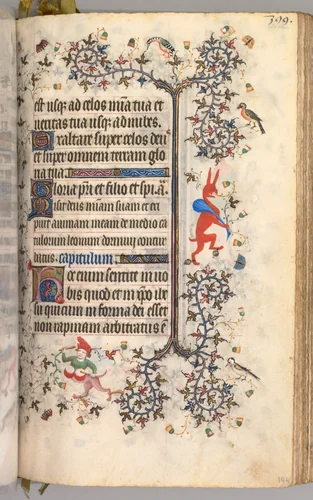 309.
est usq; ad celos mīa tua et
ueritas tua usq; ad nubes.
Exaltare super celos deus
et super omnem terram glo
ria tua.
Gloria pr̄i et filio et spi. s.
Misit deus mīam suam et eri
puit animam meam de medio ca
tulorum leonum dormiui contur
batus. capitulum.
Hoc enim sentite in uo
bis quod et in xp̄o ihe
su qui cum in forma dei esset
non rapinam arbitratus ē